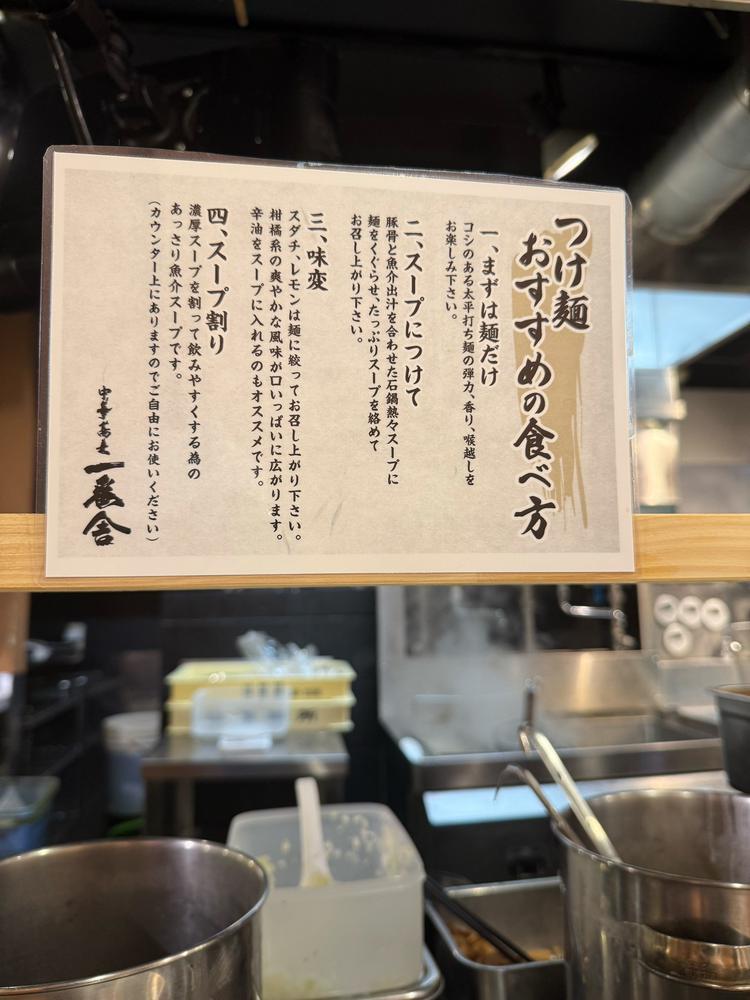 つけ麺
おすすめの食べ方
一、まずは麺だけ
コシのある太平打ち麺の弾力、香り、喉越しを
お楽しみ下さい。
二、スープにつけて
豚骨と魚介出汁を合わせた石鍋熱々スープに
麺をくぐらせ、たっぷりスープを絡めて
お召し上がり下さい。
三、味変
スダチ、レモンは麺に絞ってお召し上がり下さい。
柑橘系の爽やかな風味が口いっぱいに広がります。
辛油をスープに入れるのもオススメです。
四、スープ割り
濃厚スープを割って飲みやすくする為の
あっさり魚介スープです。
(カウンター上にありますのでご自由にお使いください)
一番舎